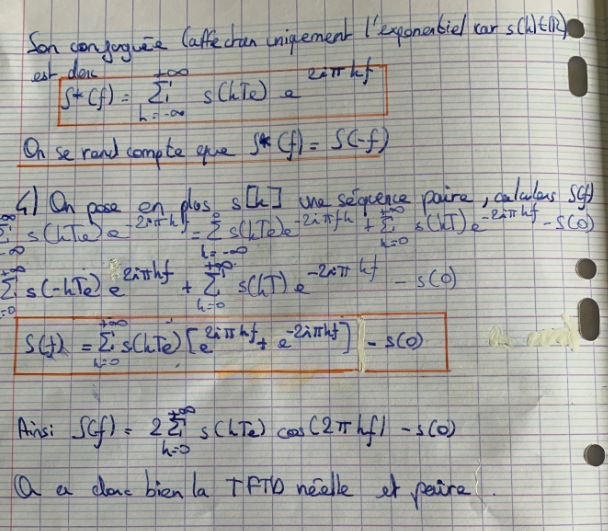 Son conjuguée (affectran uniquement l'exponentiel car s(k)∈ℝ)
est donc
S*(f) = Σ_{k=-∞}^{+∞} s(kTe) e^{2iπkf}
On se rand compte que S*(f) = S(-f)
4) On pose en plus s[k] une séquence paire, calculons S(f)
Σ s(kTe) e^{-2iπkf} = Σ_{k=-∞}^{0} s(kTe) e^{-2iπfk} + Σ_{k=0}^{+∞} s(kT) e^{-2iπkf} - s(0)
Σ_{=0}^{+∞} s(-kTe) e^{2iπkf} + Σ_{k=0}^{+∞} s(kT) e^{-2iπkf} - s(0)
S(f) = Σ_{k=0}^{+∞} s(kTe) [e^{2iπkf} + e^{-2iπkf}] - s(0)
Ainsi S(f) = 2 Σ_{k=0}^{+∞} s(kTe) cos(2πkf) - s(0)
On a donc bien la TFTD réelle et paire.